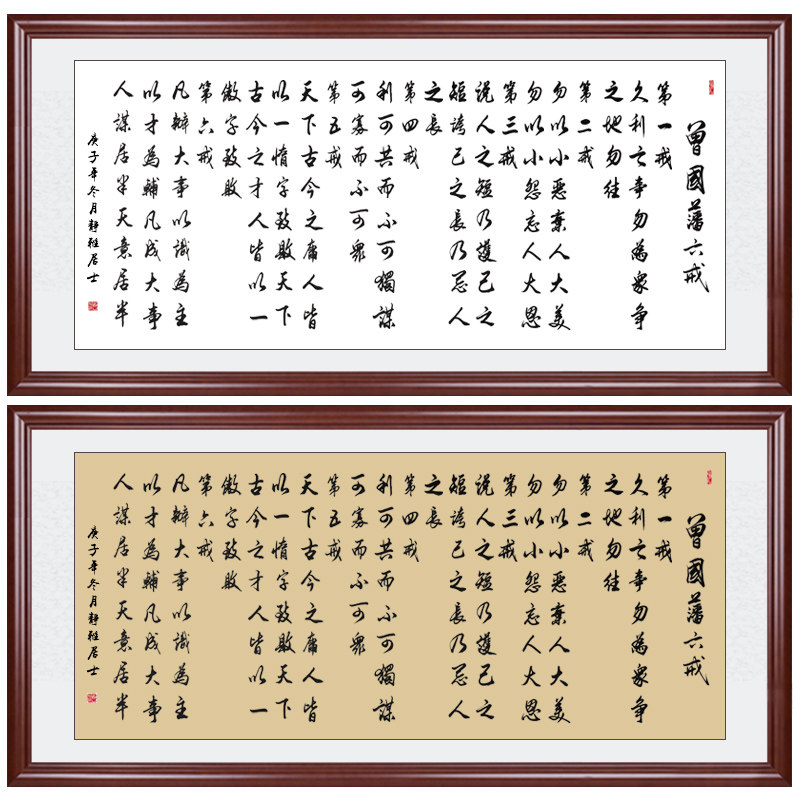 曾國藩六戒
第一戒
久利之事勿為眾争
之地勿往
第二戒
勿以小惡棄人大美
勿以小怨忘人大恩
第三戒
説人之短乃護己之
短誇己之長乃忌人
之長
第四戒
利可共而不可獨謀
可寡而不可眾
第五戒
天下古今之庸人皆
以一惰字致敗天下
古今之才人皆以一
傲字致敗
第六戒
凡辦大事以識為主
以才為輔凡成大事
人謀居半天意居半
庚子年冬月靜雅居士
曾國藩六戒
第一戒
久利之事勿為眾争
之地勿往
第二戒
勿以小惡棄人大美
勿以小怨忘人大恩
第三戒
説人之短乃護己之
短誇己之長乃忌人
之長
第四戒
利可共而不可獨謀
可寡而不可眾
第五戒
天下古今之庸人皆
以一惰字致敗天下
古今之才人皆以一
傲字致敗
第六戒
凡辦大事以識為主
以才為輔凡成大事
人謀居半天意居半
庚子年冬月靜雅居士